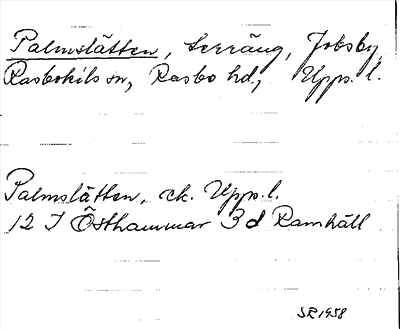 Palmslätten, Serräng, Jobsby,
Rasbokils sn, Rasbo hd, Upps. l.
Palmslätten, ek. Upps. l.
12 I Östhammar 3 d Ramhäll
SR 1958